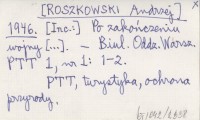 [ROSZKOWSKI Andrzej]
x
1946. [Inc.:] Po zakończeniu
wojny [...]. – Biul. Oddz. Warsz.
PTT 1, nr 1: 1-2.
PTT, turystyka, ochrona
przyrody.